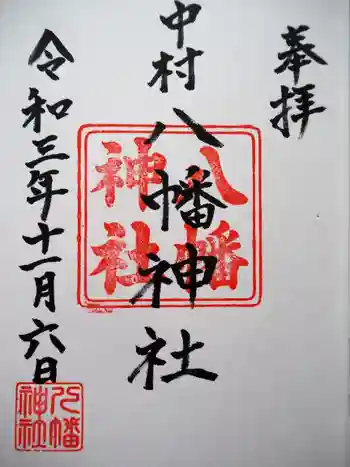 奉拝
中村
八幡神社
八幡
神社
令和三年十一月六日
八幡
神社